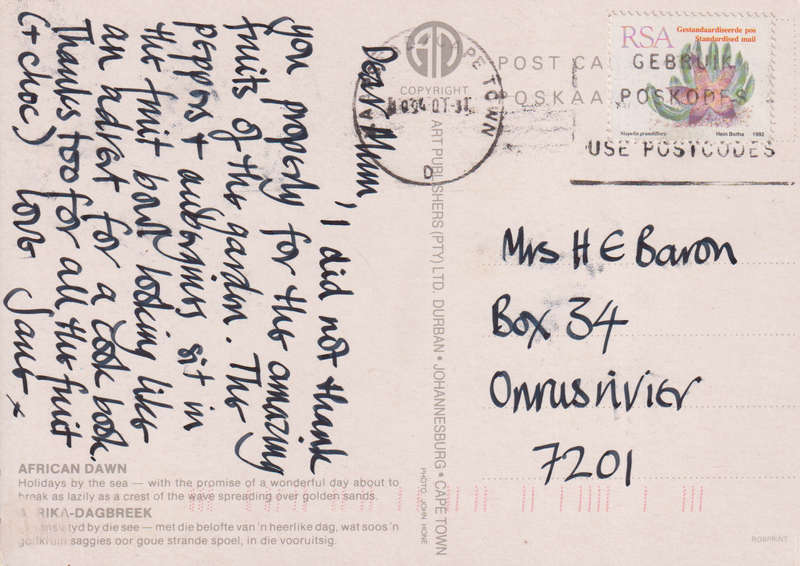 Dear Mum,
I did not thank
you properly for the amazing
fruits of the garden. The
peppers & aubergines sit in
the fruit bowl looking like
an advert for a cook book.
Thanks too for all the fruit
(& choc) love Jane x
AFRICAN DAWN
Holidays by the sea — with the promise of a wonderful day about to
break as lazily as a crest of the wave spreading over golden sands.
AFRIKA-DAGBREEK
by die see — met die belofte van 'n heerlike dag, wat soos 'n
saggies oor goue strande spoel, in die vooruitsig.
COPYRIGHT
ART PUBLISHERS (PTY) LTD. DURBAN • JOHANNESBURG • CAPE TOWN
PHOTO: JOHN HONE
CAPE TOWN
D
POST CA
POSKAA
GEBRUIK
POSKODES
USE POSTCODES
RSA
Gestandaardiseerde pos
Standardised mail
Stapelia grandiflora
Hein Botha 1992
Mrs H E Baron
Box 34
Onrusrivier
7201
ROBPRINT